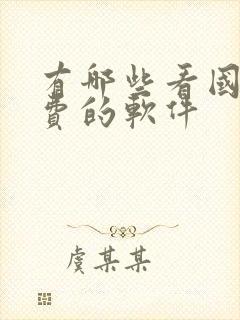 有哪些看國
費的軟件
虞某某